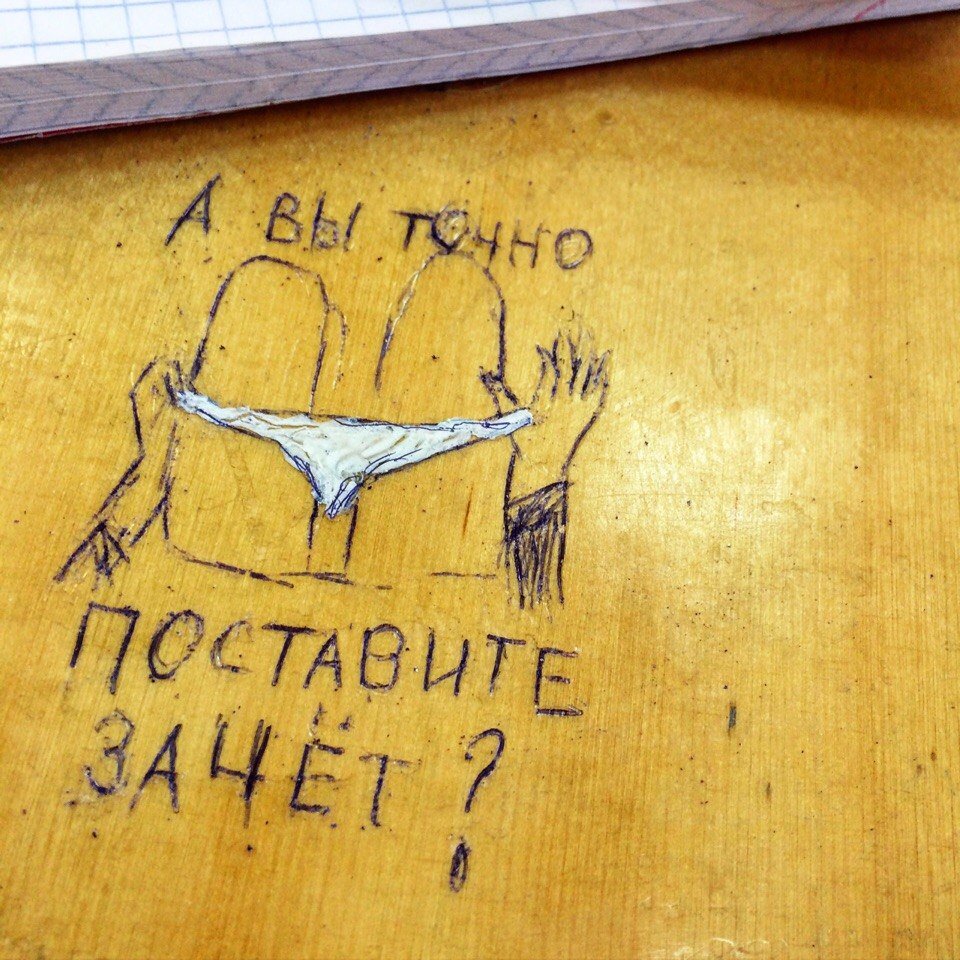 А ВЫ ТОЧНО
ПОСТАВИТЕ
ЗАЧЁТ?